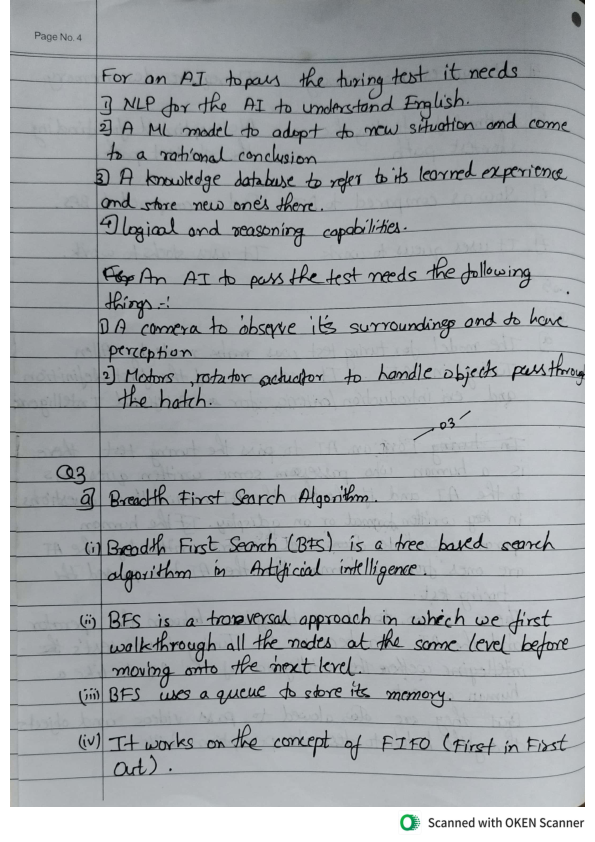 Page No. 4
For an AI to pass the turing test it needs
1] NLP for the AI to understand English.
2] A ML model to adopt to new situation and come
to a rational conclusion
3] A knowledge database to refer to its learned experience
and store new one's there.
4] logical and reasoning capabilities.
An AI to pass the test needs the following
things :-
1) A camera to observe it's surroundings and to have
perception
2) Motors, rotator actuator to handle objects pass through
the hatch.
03
Q3
a] Breadth First Search Algorithm.
(i) Breadth First Search (BFS) is a tree based search
algorithm in Artificial intelligence.
(ii) BFS is a traversal approach in which we first
walkthrough all the nodes at the same level before
moving onto the next level.
(iii) BFS uses a queue to store its memory.
(iv) It works on the concept of FIFO (First in First
Out).
Scanned with OKEN Scanner